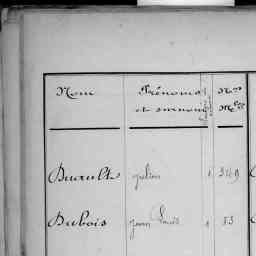 Nom Prénoms Nos
et surnoms Mles
Duault julien 1 349
Dubois jean Louis 1 83